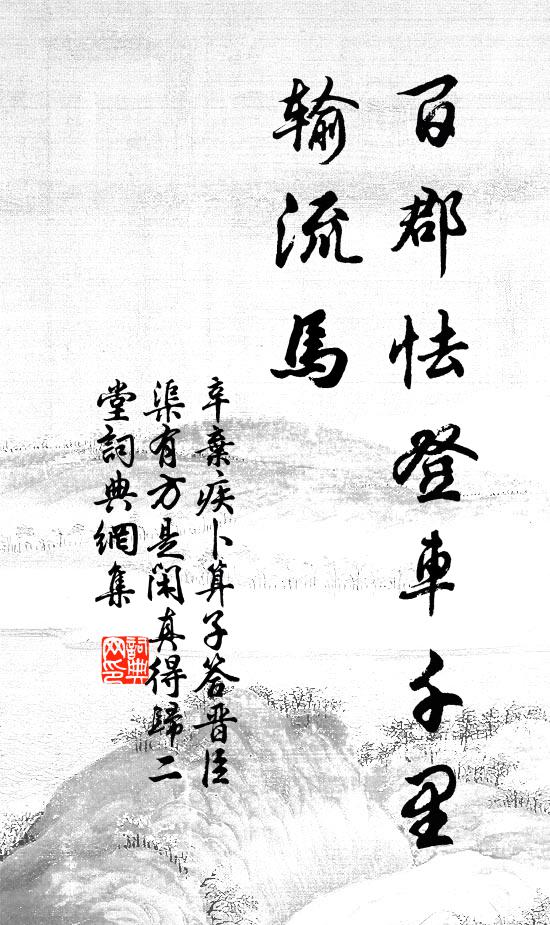 百郡怯登車千里
輸流馬
辛棄疾卜算子答晋臣
渠有方是閑真得歸二
堂詞典網集
詞典
网印